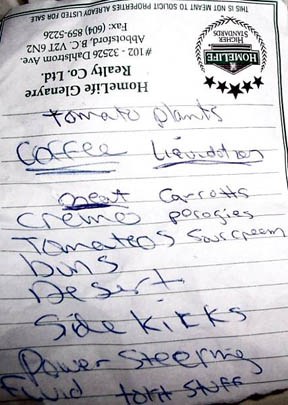 THIS IS NOT MEANT TO SOLICIT PROPERTY ALREADY LISTED FOR SALE
HOMELIFE
HIGHER STANDARDS
HomeLife Glenayre
Realty Co. Ltd.
#102 - 32526 Dahlstrom Ave.
Abbotsford, B.C. V2T 6N2
Fax: (604) 859-5226
tomato plants
Coffee Liquidation
meat Carrotts
Cremo perogies
Tomateos Sour cream
buns
Desert
Side kicks
Power steering
fluid toilt stuff